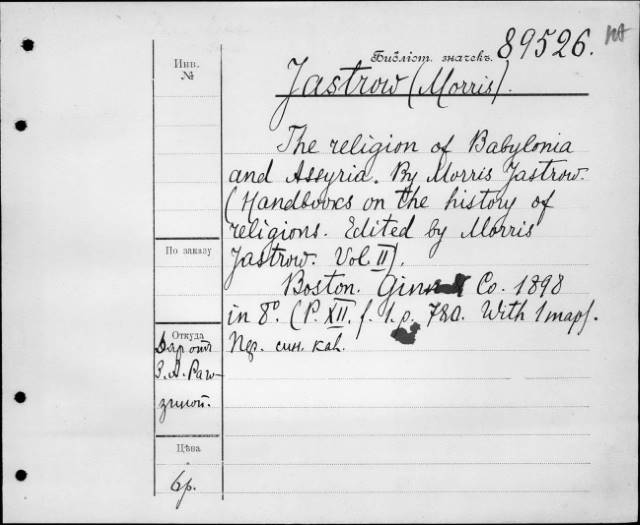 Библіот. значекъ. 89526.
Инв.
№
Jastrow (Morris).
The religion of Babylonia
and Assyria. By Morris Jastrow.
(Handbooks on the history of
religions. Edited by Morris
Jastrow. Vol. II).
По заказу
Boston. Ginn & Co. 1898
in 8º. (P. XII. f. 1. p. 780. With 1 map).
Откуда
Даръ отъ
З. А. Раго-
зиной.
Пер. син. каl.
Цѣна
6 р.